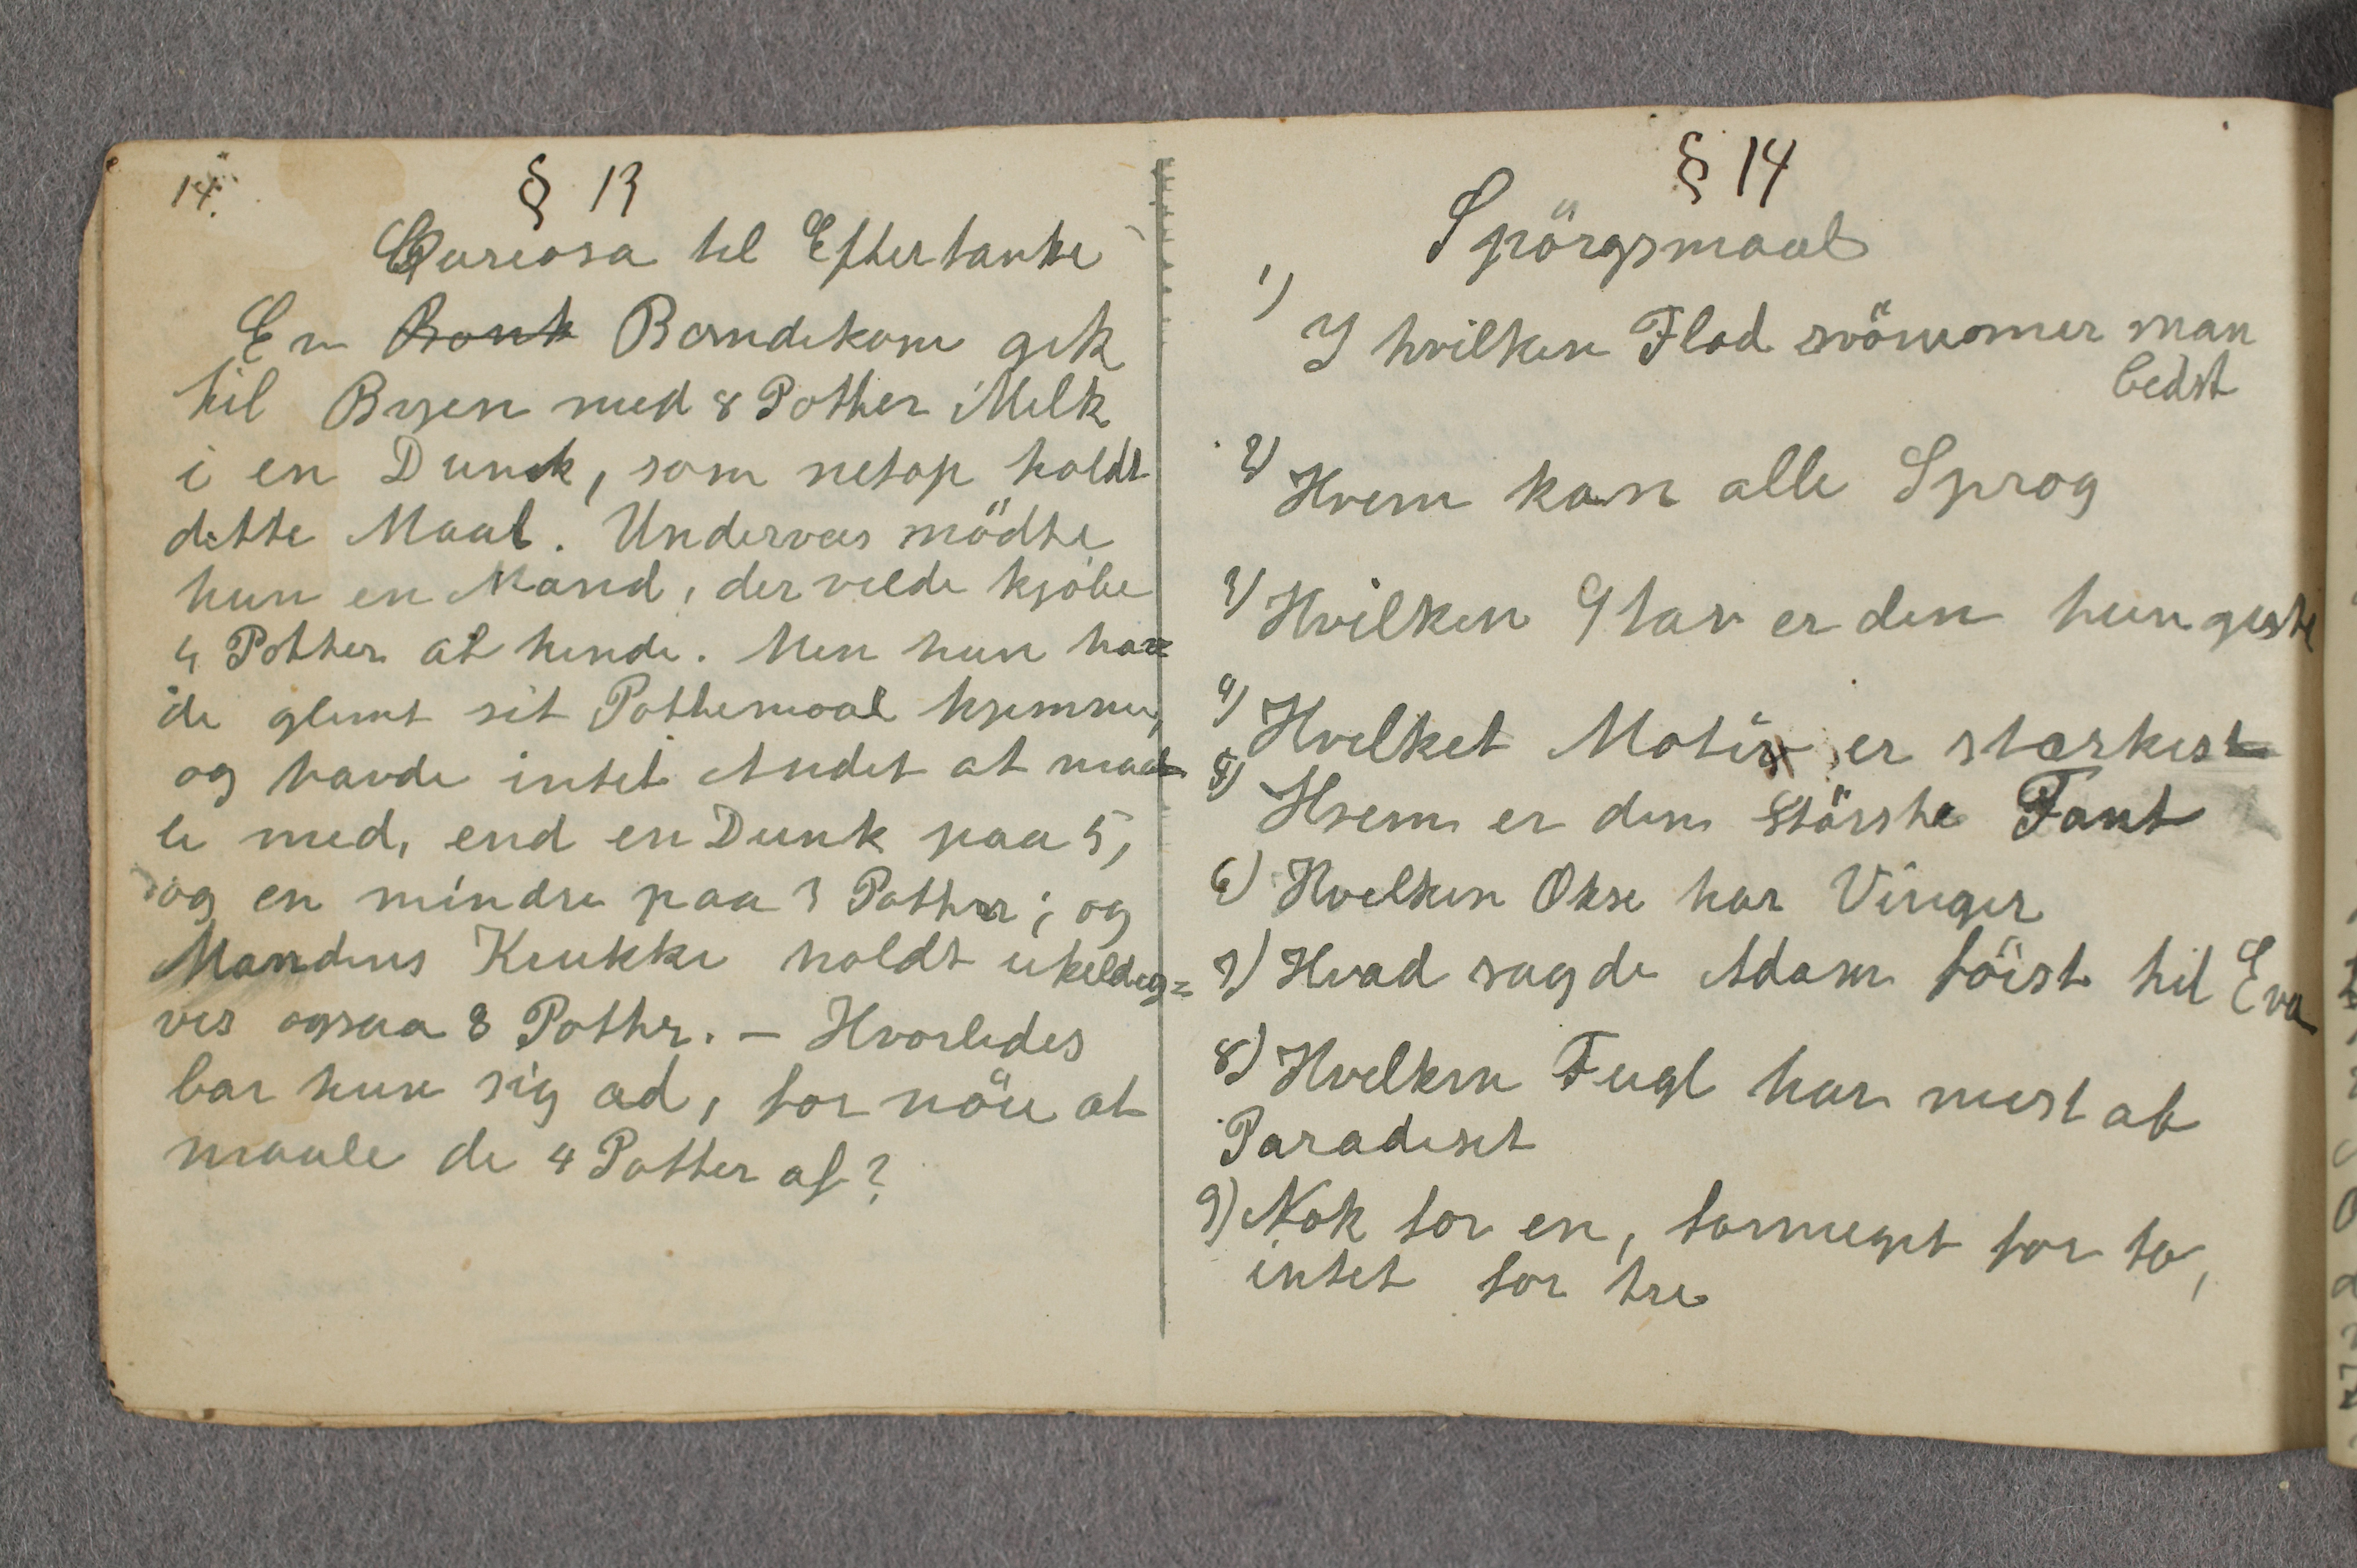 14.
§ 13
Curiosa til Eftertanke
En Bonk Bondekone gik
til Byen med 8 Potter Melk
i en Dunk, som netop holdt
dette Maal. Underveis mödte
hun en Mand, der vilde kjöbe
4 Potter af hende. Men hun hav=
de glemt sit Pottemaal hjemme,
og havde intet Andet at maa
le med, end en Dunk paa 5,
og en mindre paa 3 Potter; og
Mandens Krukke holdt uheldig=
vis ogsaa 8 Potter. – Hvorledes
bar hun sig ad, for nöie at
maale de 4 Potter af?
§ 14
Spörgsmaal
1)
I hvilken Flod svömmer man
bedst
2)
Hvem kan alle Sprog
3) Hvilken Stav er den tungeste
4)
Hvilket Motiv er stærkest
5)
Hvem er den störste Fant
6) Hvilken Okse har Vinger
7) Hvad sagde Adam först til Eva
8) Hvilken Fugl har mest af
Paradiset
9) Nok for en, formeget for to,
intet for tre